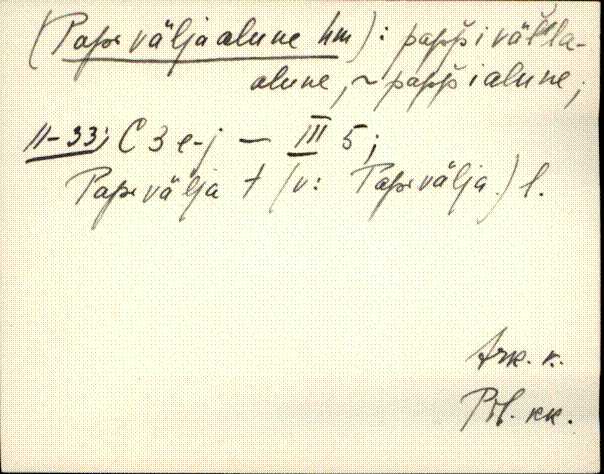 (Papi väljaalune hm): papp̌i väľľa-
alune, ~ papp̌ialune;
II-33; C 3 e-j — III 5;
Papi välja † (v: Papi välja) l.
Ark. v.
Pöl. kk.